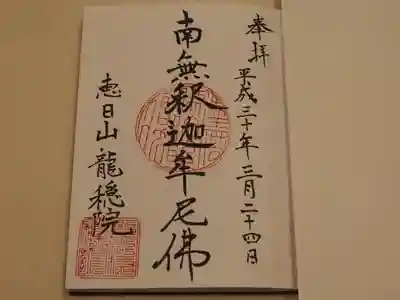 奉拝
平成三十年三月二十四日
南無釈迦牟尼佛
恵日山 龍穏院